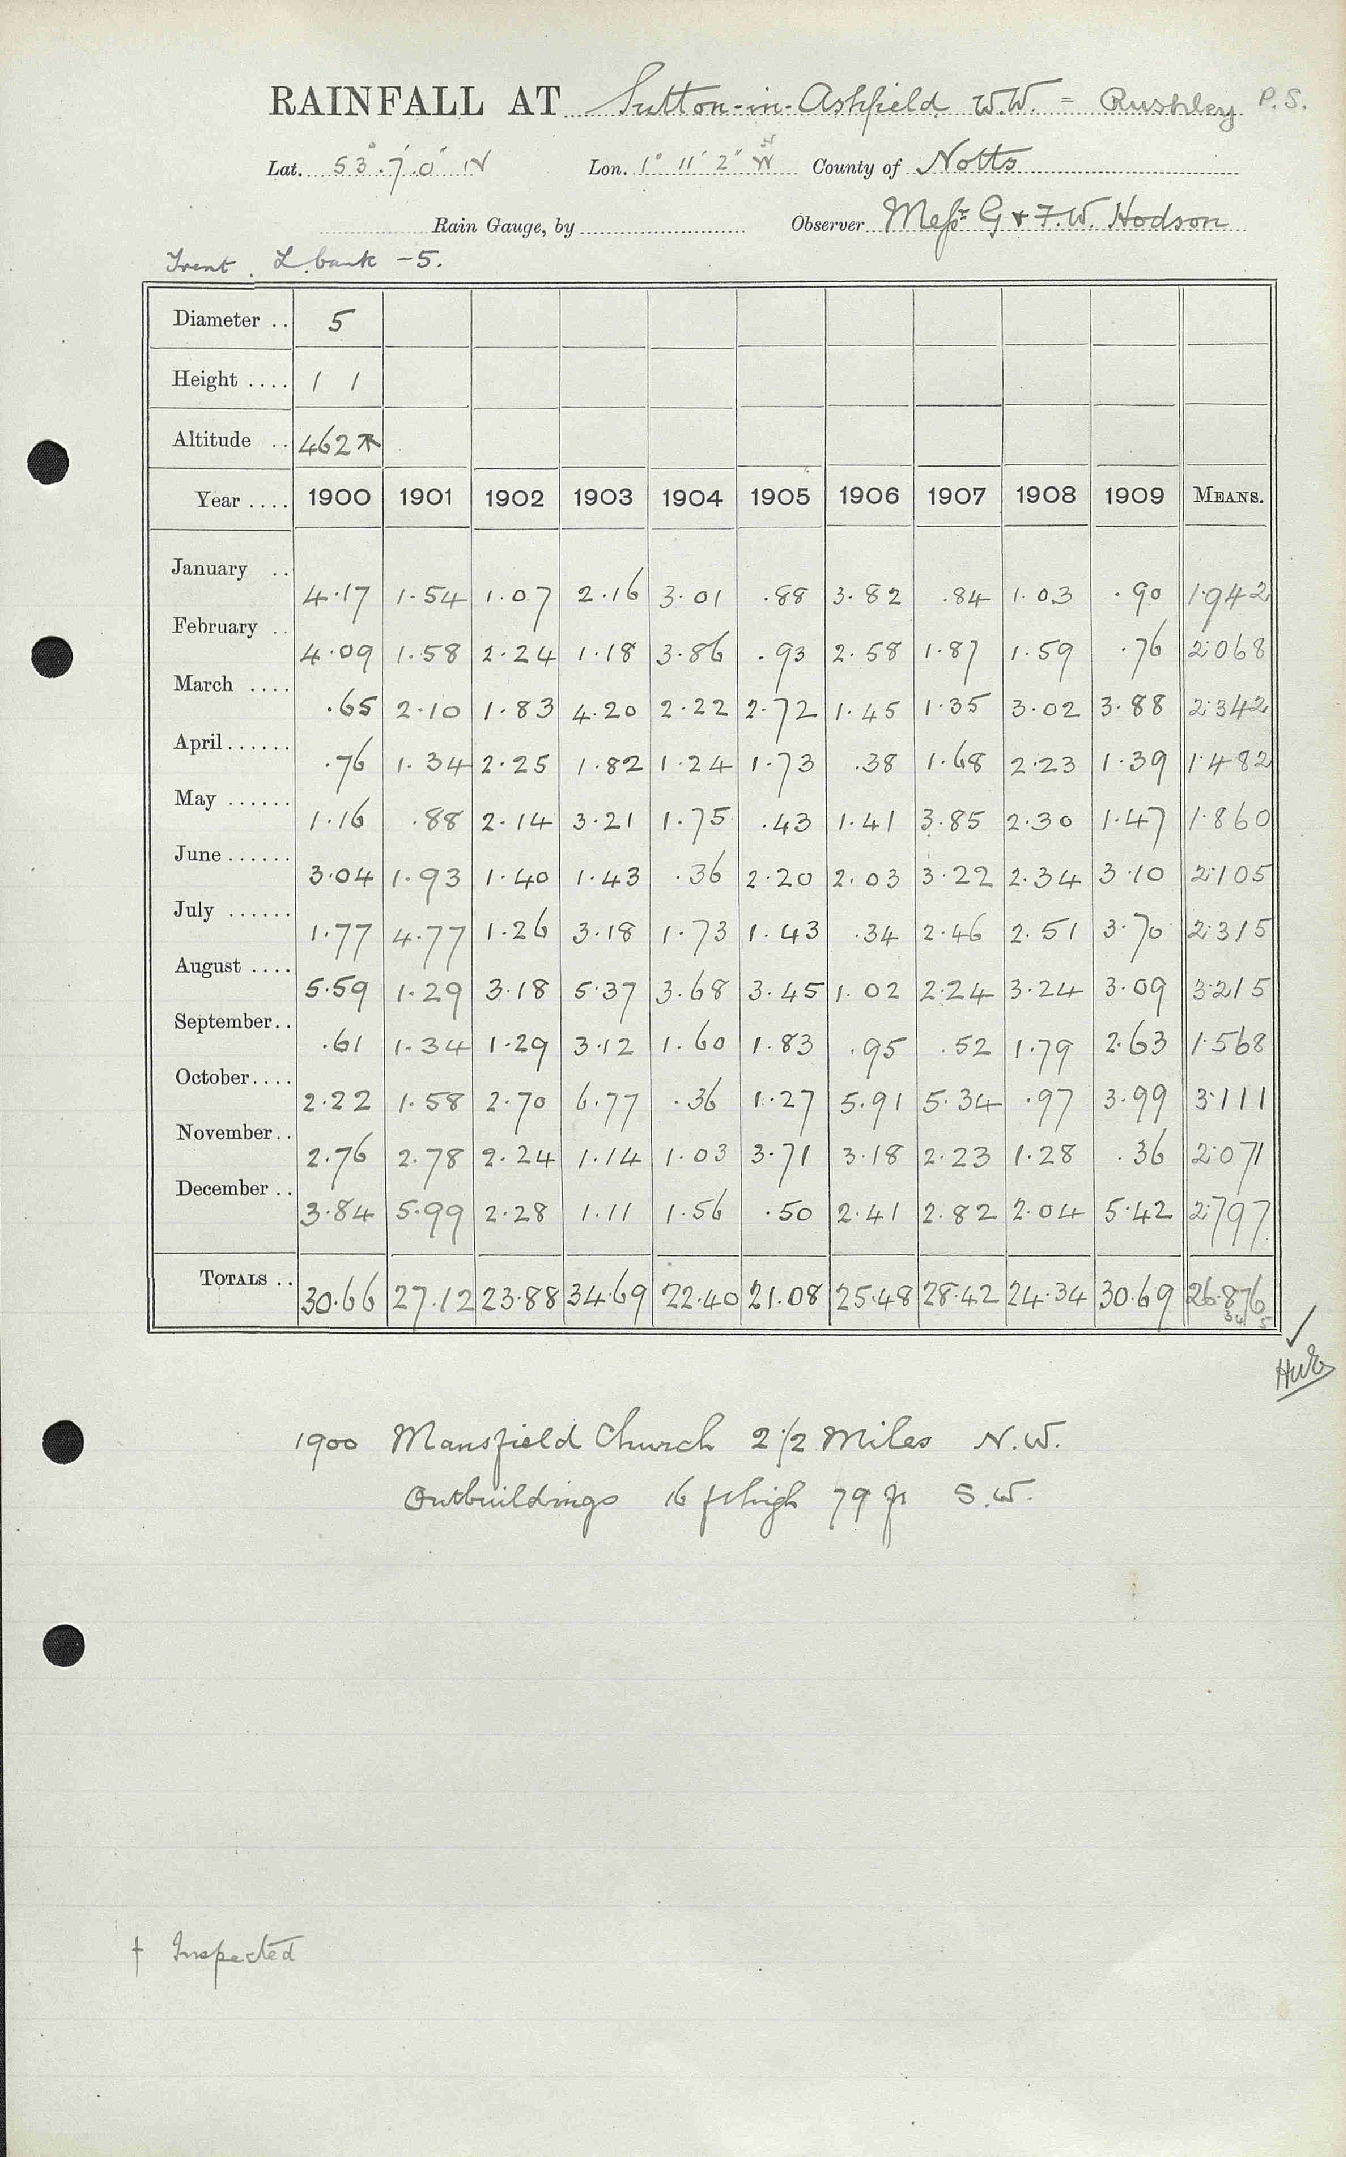 RAINFALL AT Sutton-in-Ashfield W.W. = Rushley P.S.
Lat. 53° 7' 0" N Lon. 1° 11' 2" W County of Notts
Rain Gauge, by Observer Messrs G & F.W. Hodson
Trent. L. bank - 5.
Diameter .. 5
Height .... 1 1
Altitude .. 462
Year .... 1900 1901 1902 1903 1904 1905 1906 1907 1908 1909 MEANS.
January .. 4.17 1.54 1.07 2.16 3.01 .88 3.82 .84 1.03 .90 1.942
February .. 4.09 1.58 2.24 1.18 3.86 .93 2.58 1.87 1.59 .76 2.068
March .... .65 2.10 1.83 4.20 2.22 2.72 1.45 1.35 3.02 3.88 2.342
April ...... .76 1.34 2.25 1.82 1.24 1.73 .38 1.68 2.23 1.39 1.482
May ...... 1.16 .88 2.14 3.21 1.75 .43 1.41 3.85 2.30 1.47 1.860
June ...... 3.04 1.93 1.40 1.43 .36 2.20 2.03 3.22 2.34 3.10 2.105
July ...... 1.77 4.77 1.26 3.18 1.73 1.43 .34 2.46 2.51 3.70 2.315
August .... 5.59 1.29 3.18 5.37 3.68 3.45 1.02 2.24 3.24 3.09 3.215
September .. .61 1.34 1.29 3.12 1.60 1.83 .95 .52 1.79 2.63 1.568
October .... 2.22 1.58 2.70 6.77 .36 1.27 5.91 5.34 .97 3.99 3.111
November .. 2.76 2.78 2.24 1.14 1.03 3.71 3.18 2.23 1.28 .36 2.071
December .. 3.84 5.99 2.28 1.11 1.56 .50 2.41 2.82 2.04 5.42 2.797
TOTALS .. 30.66 27.12 23.88 34.69 22.40 21.08 25.48 28.42 24.34 30.69 26.876
34 5
1900 Mansfield Church 2 1/2 Miles N.W.
Outbuildings 16 ft high 79 ft S.W.
† Inspected